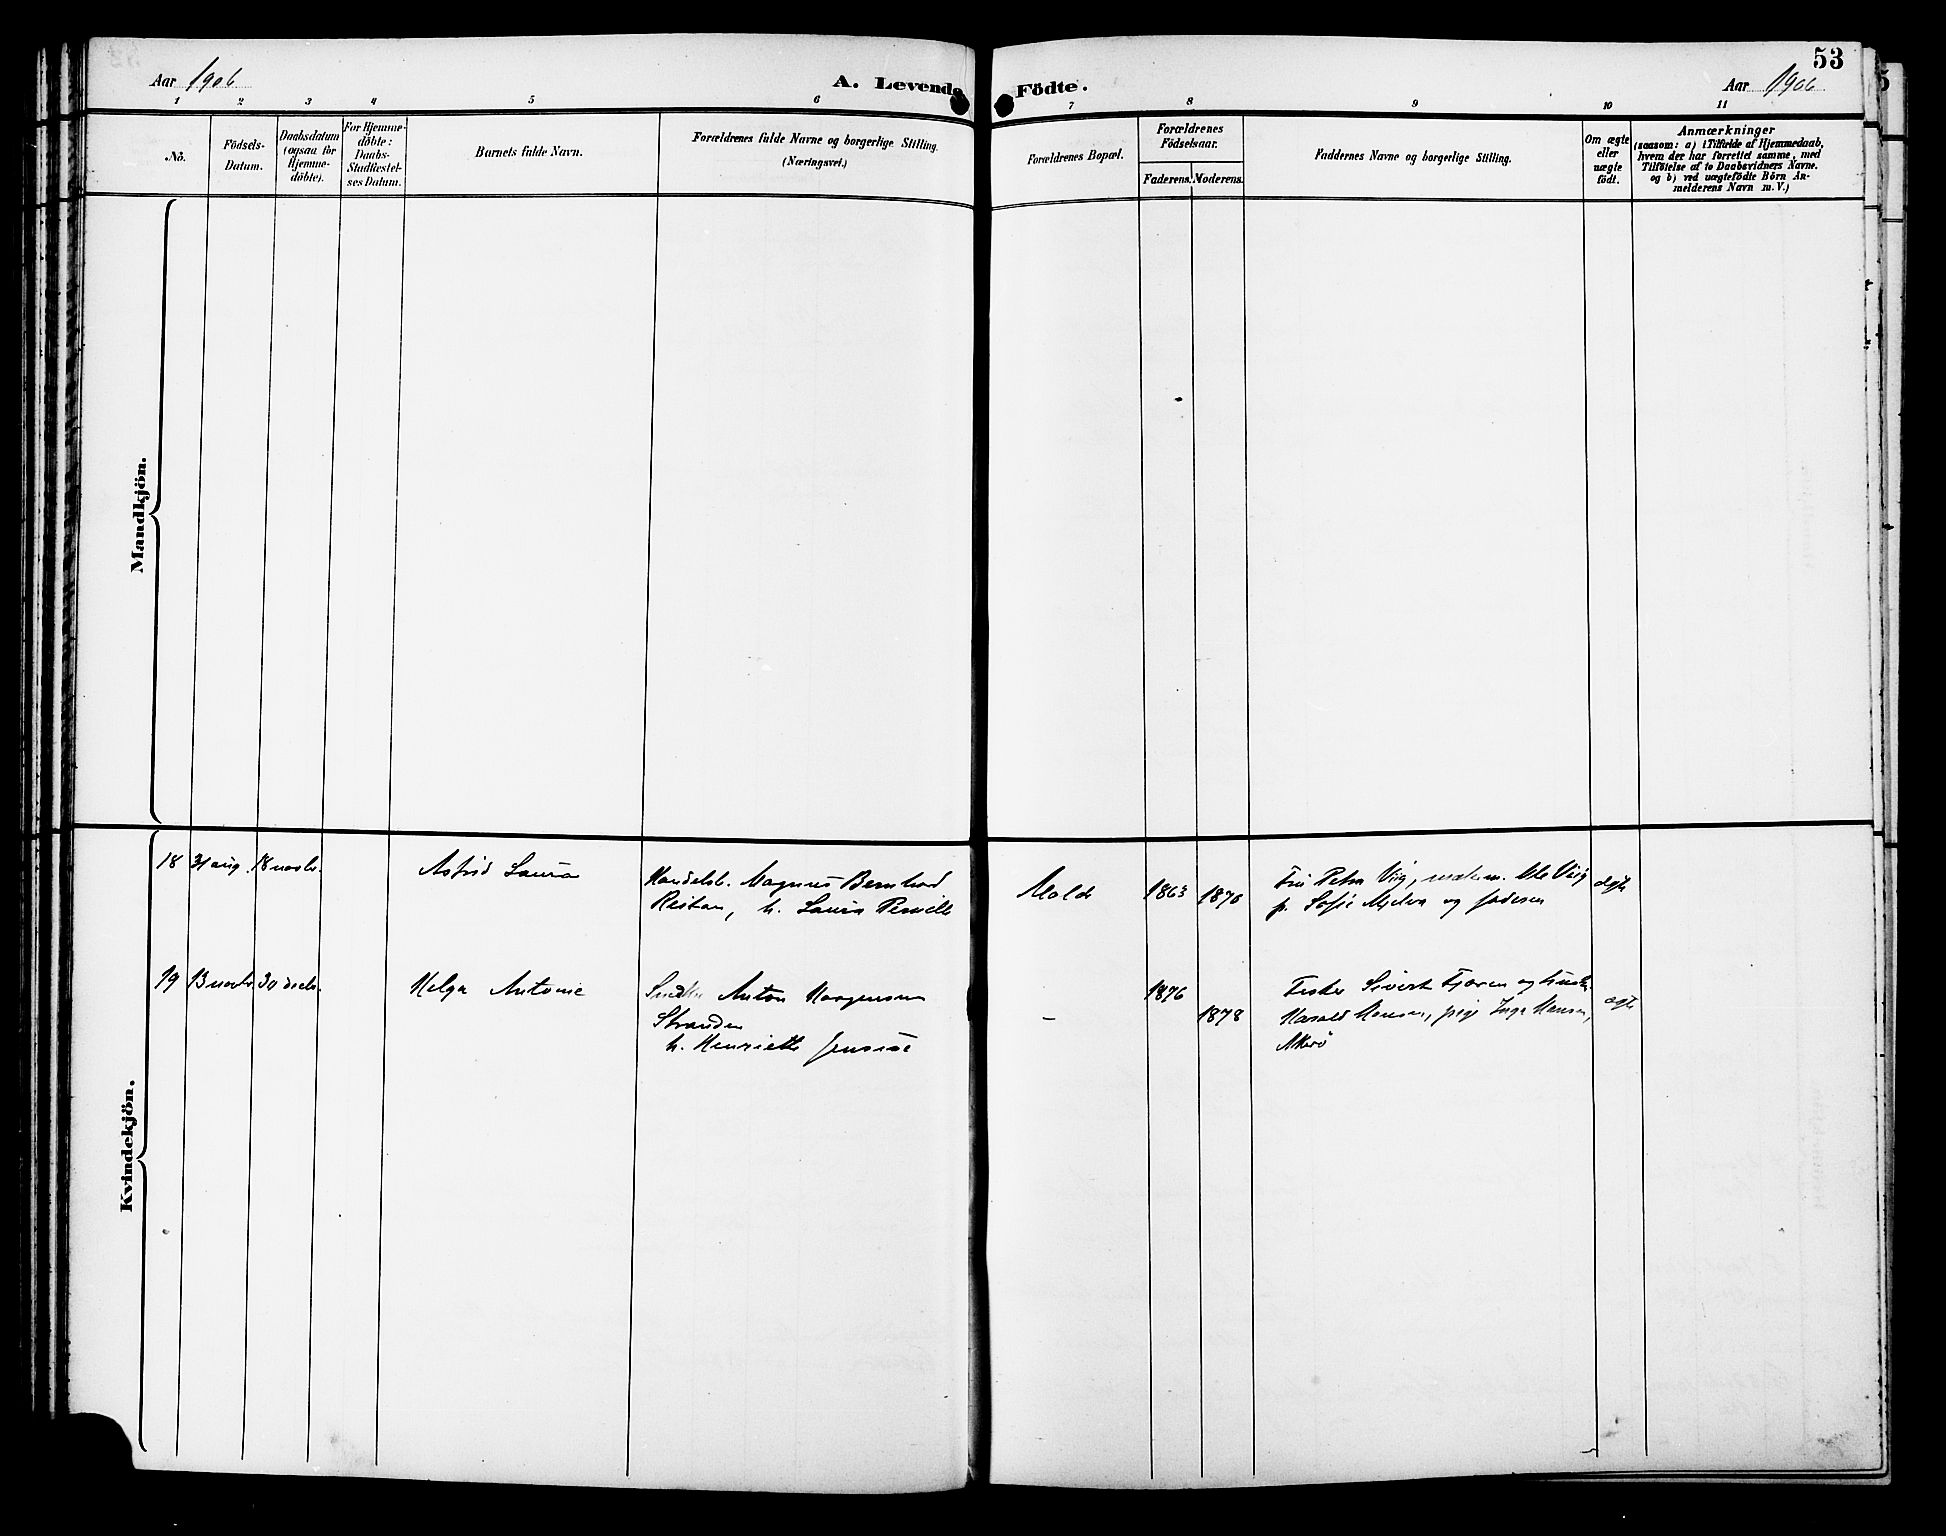 53
Aar 1906
A. Levende Födte.
Aar 1906
1 2 3 4 5 6 7 8 9 10 11
No.
Födsels-
Datum.
Daabsdatum
(ogsaa for
Hjemme-
döbte).
For Hjemme-
döbte:
Daabs-
Stadfæstel-
ses Datum.
Barnets fulde Navn.
Forældrenes fulde Navne og borgerlige Stilling.
(Næringsvei.)
Forældrenes Bopæl.
Forældrenes
Födselsaar.
Faderens.
Moderens.
Faddernes Navne og borgerlige Stilling.
Om ægte
eller
uægte
födt.
Anmærkninger
(saasom: a) i Tilfælde af Hjemmedaab,
hvem der har forrettet samme, med
Tilföielse af to Daabsvidners Navne.
og b) ved uægtefödte Börn An-
melderens Navn m. V.)
Mandkjön.
Kvindekjön.
18 31 aug. 18 novb.
Astrid Laura
Handelsb. Magnus Bernhard
Reitan, h. Laura
Molde
1863 1870
Fru Petra Viig, Ole Viig
p. Sofie Mjelva og faderen
ægte
19 13 novb. 30 decb.
Helga Antonie
Anton
Stranden
h. Henriette Jensine
-
1876
1878
Fisker Sivert og
Harald Hansen, pige Inga Hansen,
Akerö
ægte